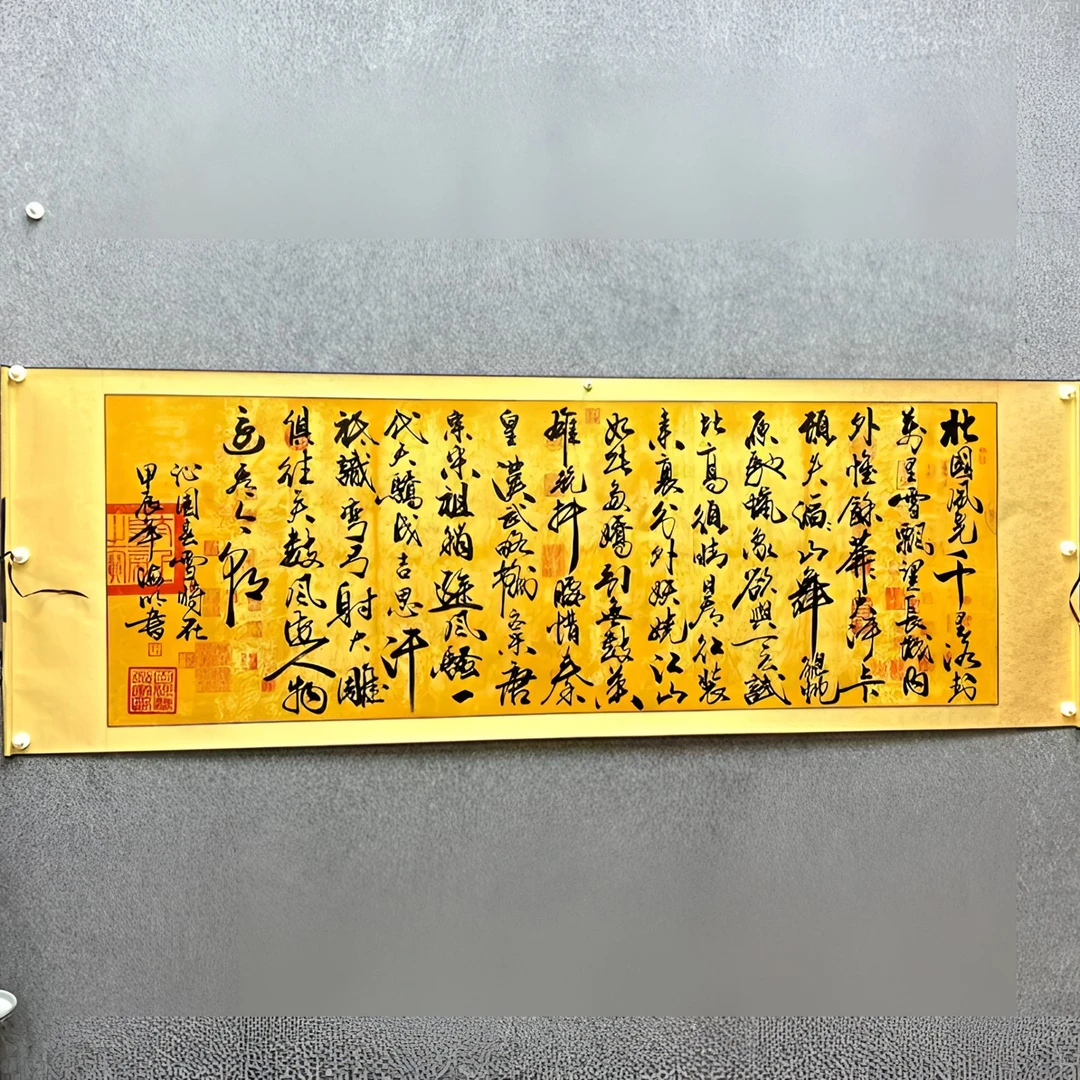 北國風光千里冰封
萬里雪飄望長城內
外惟餘莽〻
頓失滔〻山舞銀蛇
原馳蠟象欲與天公試
比高須晴日看紅裝
素裹分外妖嬈江山
如此多嬌引無數英
雄競折腰惜秦
皇漢武略輸文采唐
宗宋祖稍遜風騷一
代天驕成吉思汗
祇識彎弓射大雕
俱往矣數風流人物
還看今朝
沁園春雪時在
甲辰年書